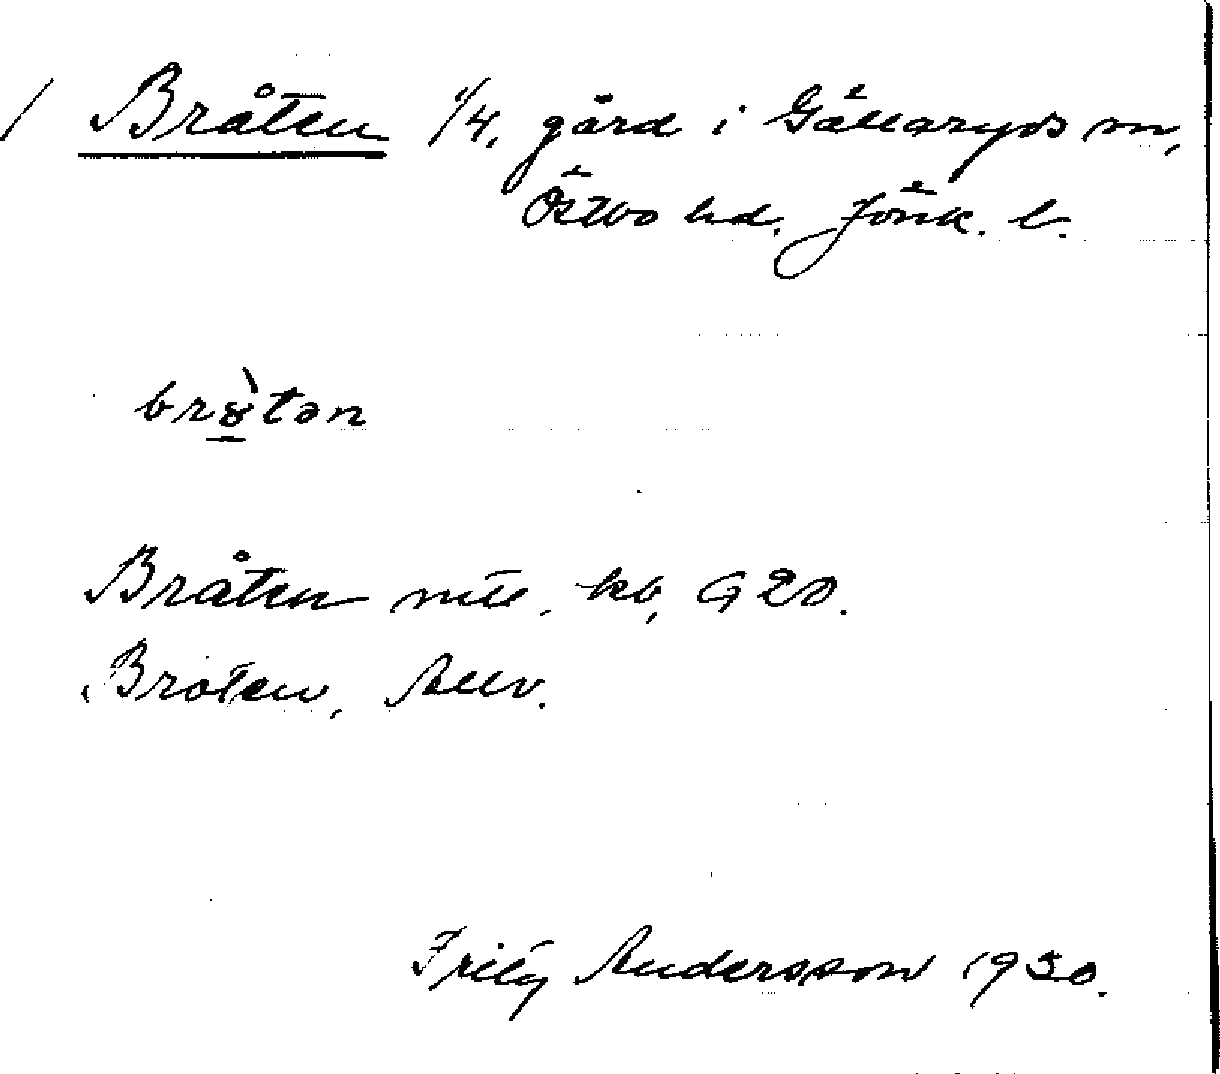 / Bråten 1/4, gård i Gällaryds sn,
Östbo hd. Jönk. l.
brɤ̀tən
Bråten mtl. kb, G 20.
Bråten, Allv.
Fritz Andersson 1930.